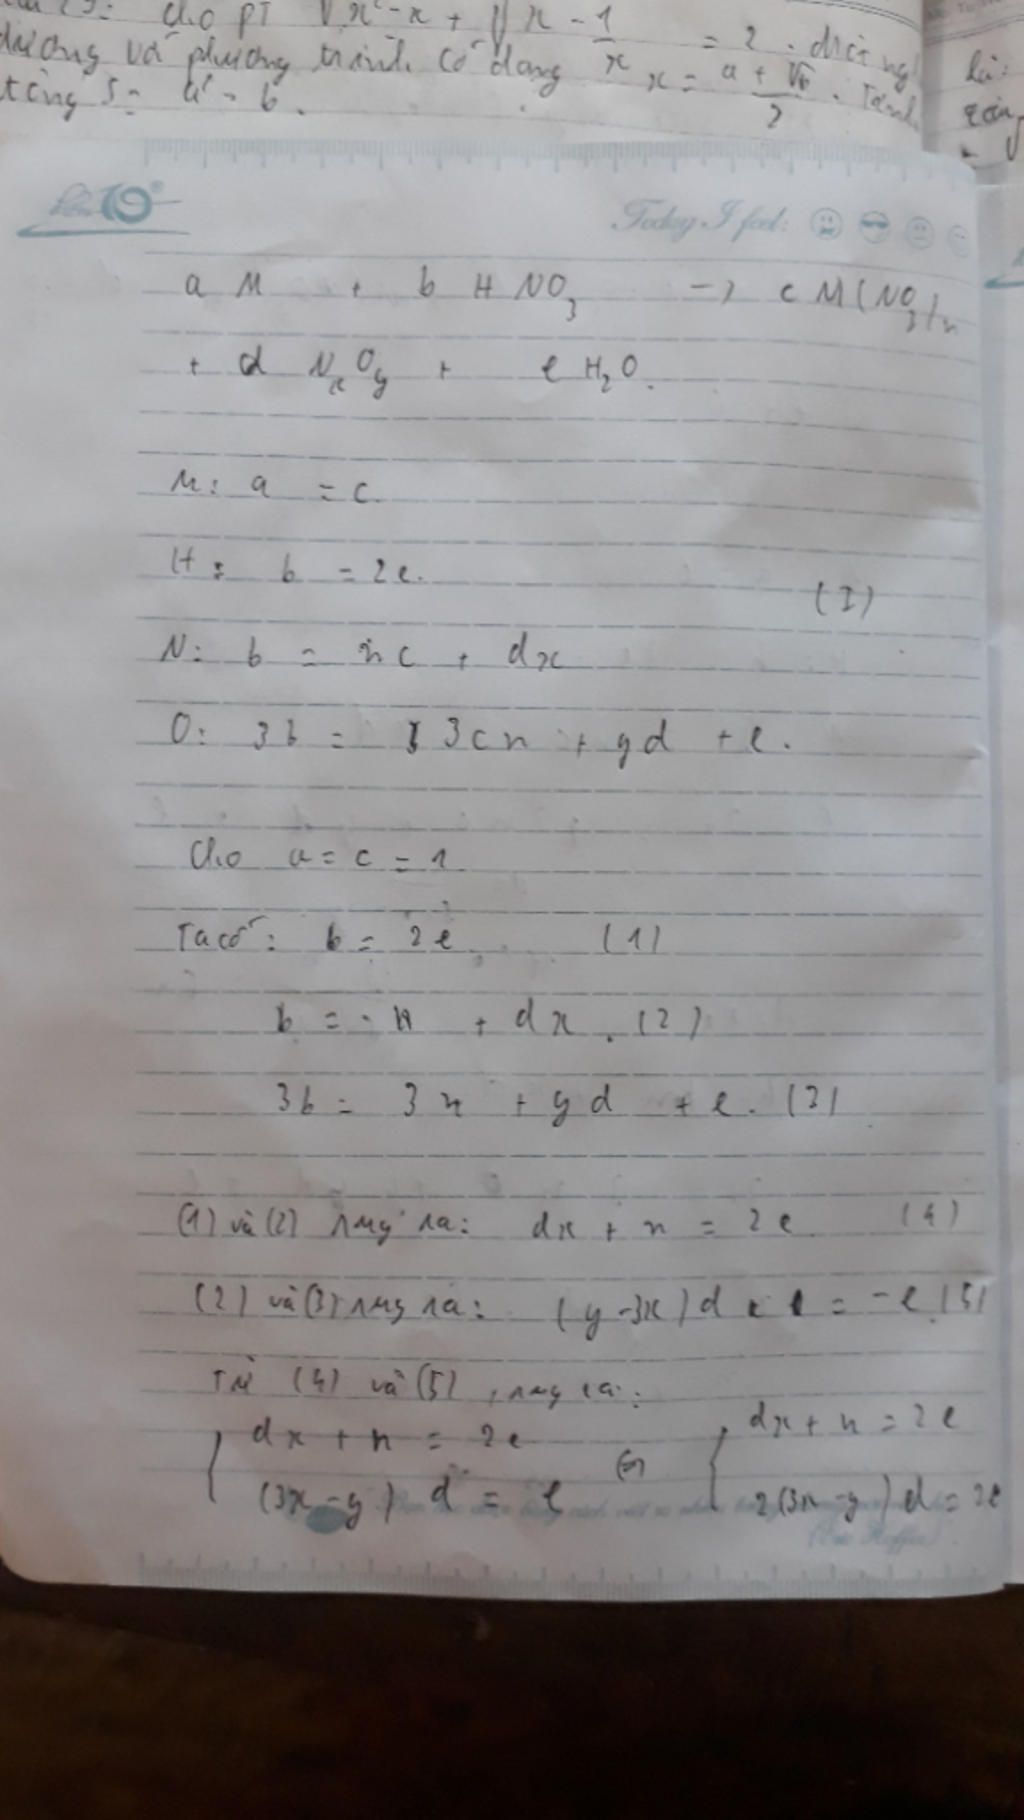 cho PT √x²-x + √x - 1/x = 2. biết ng
dương và phương trình có dạng x = a + √b / 2. Tính
tổng S =
10
Today I feel:
a M + b HNO₃ -> c M(NO₃)ₙ
+ d NₓOy + e H₂O.
M: a = c.
H: b = 2e.
(I)
N: b = nc + dx
O: 3b = 3cn + yd + e.
Cho a = c = 1
Ta có: b = 2e. (1)
b = n + dx. (2)
3b = 3n + yd + e. (3)
(1) và (2) suy ra: dx + n = 2e (4)
(2) và (3) suy ra: (y - 3x)d = -e (5)
Từ (4) và (5), suy ra:
{ dx + n = 2e (⇔) { dx + n = 2e
(3x - y) d = e 2(3x - y) d = 2e